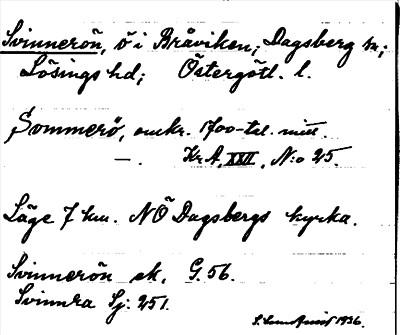 Svinnerön, ö i Bråviken; Dagsberg sn;
Lösings hd; Östergötl. l.
Sommerö, omkr. 1700-tal. mitt.
—. Kr. A, XXII, N:o 25.
Läge 7 km. NÖ Dagsbergs kyrka.
Svinnerön ek. G. 56.
Svinnra Sj: 251.
1936.